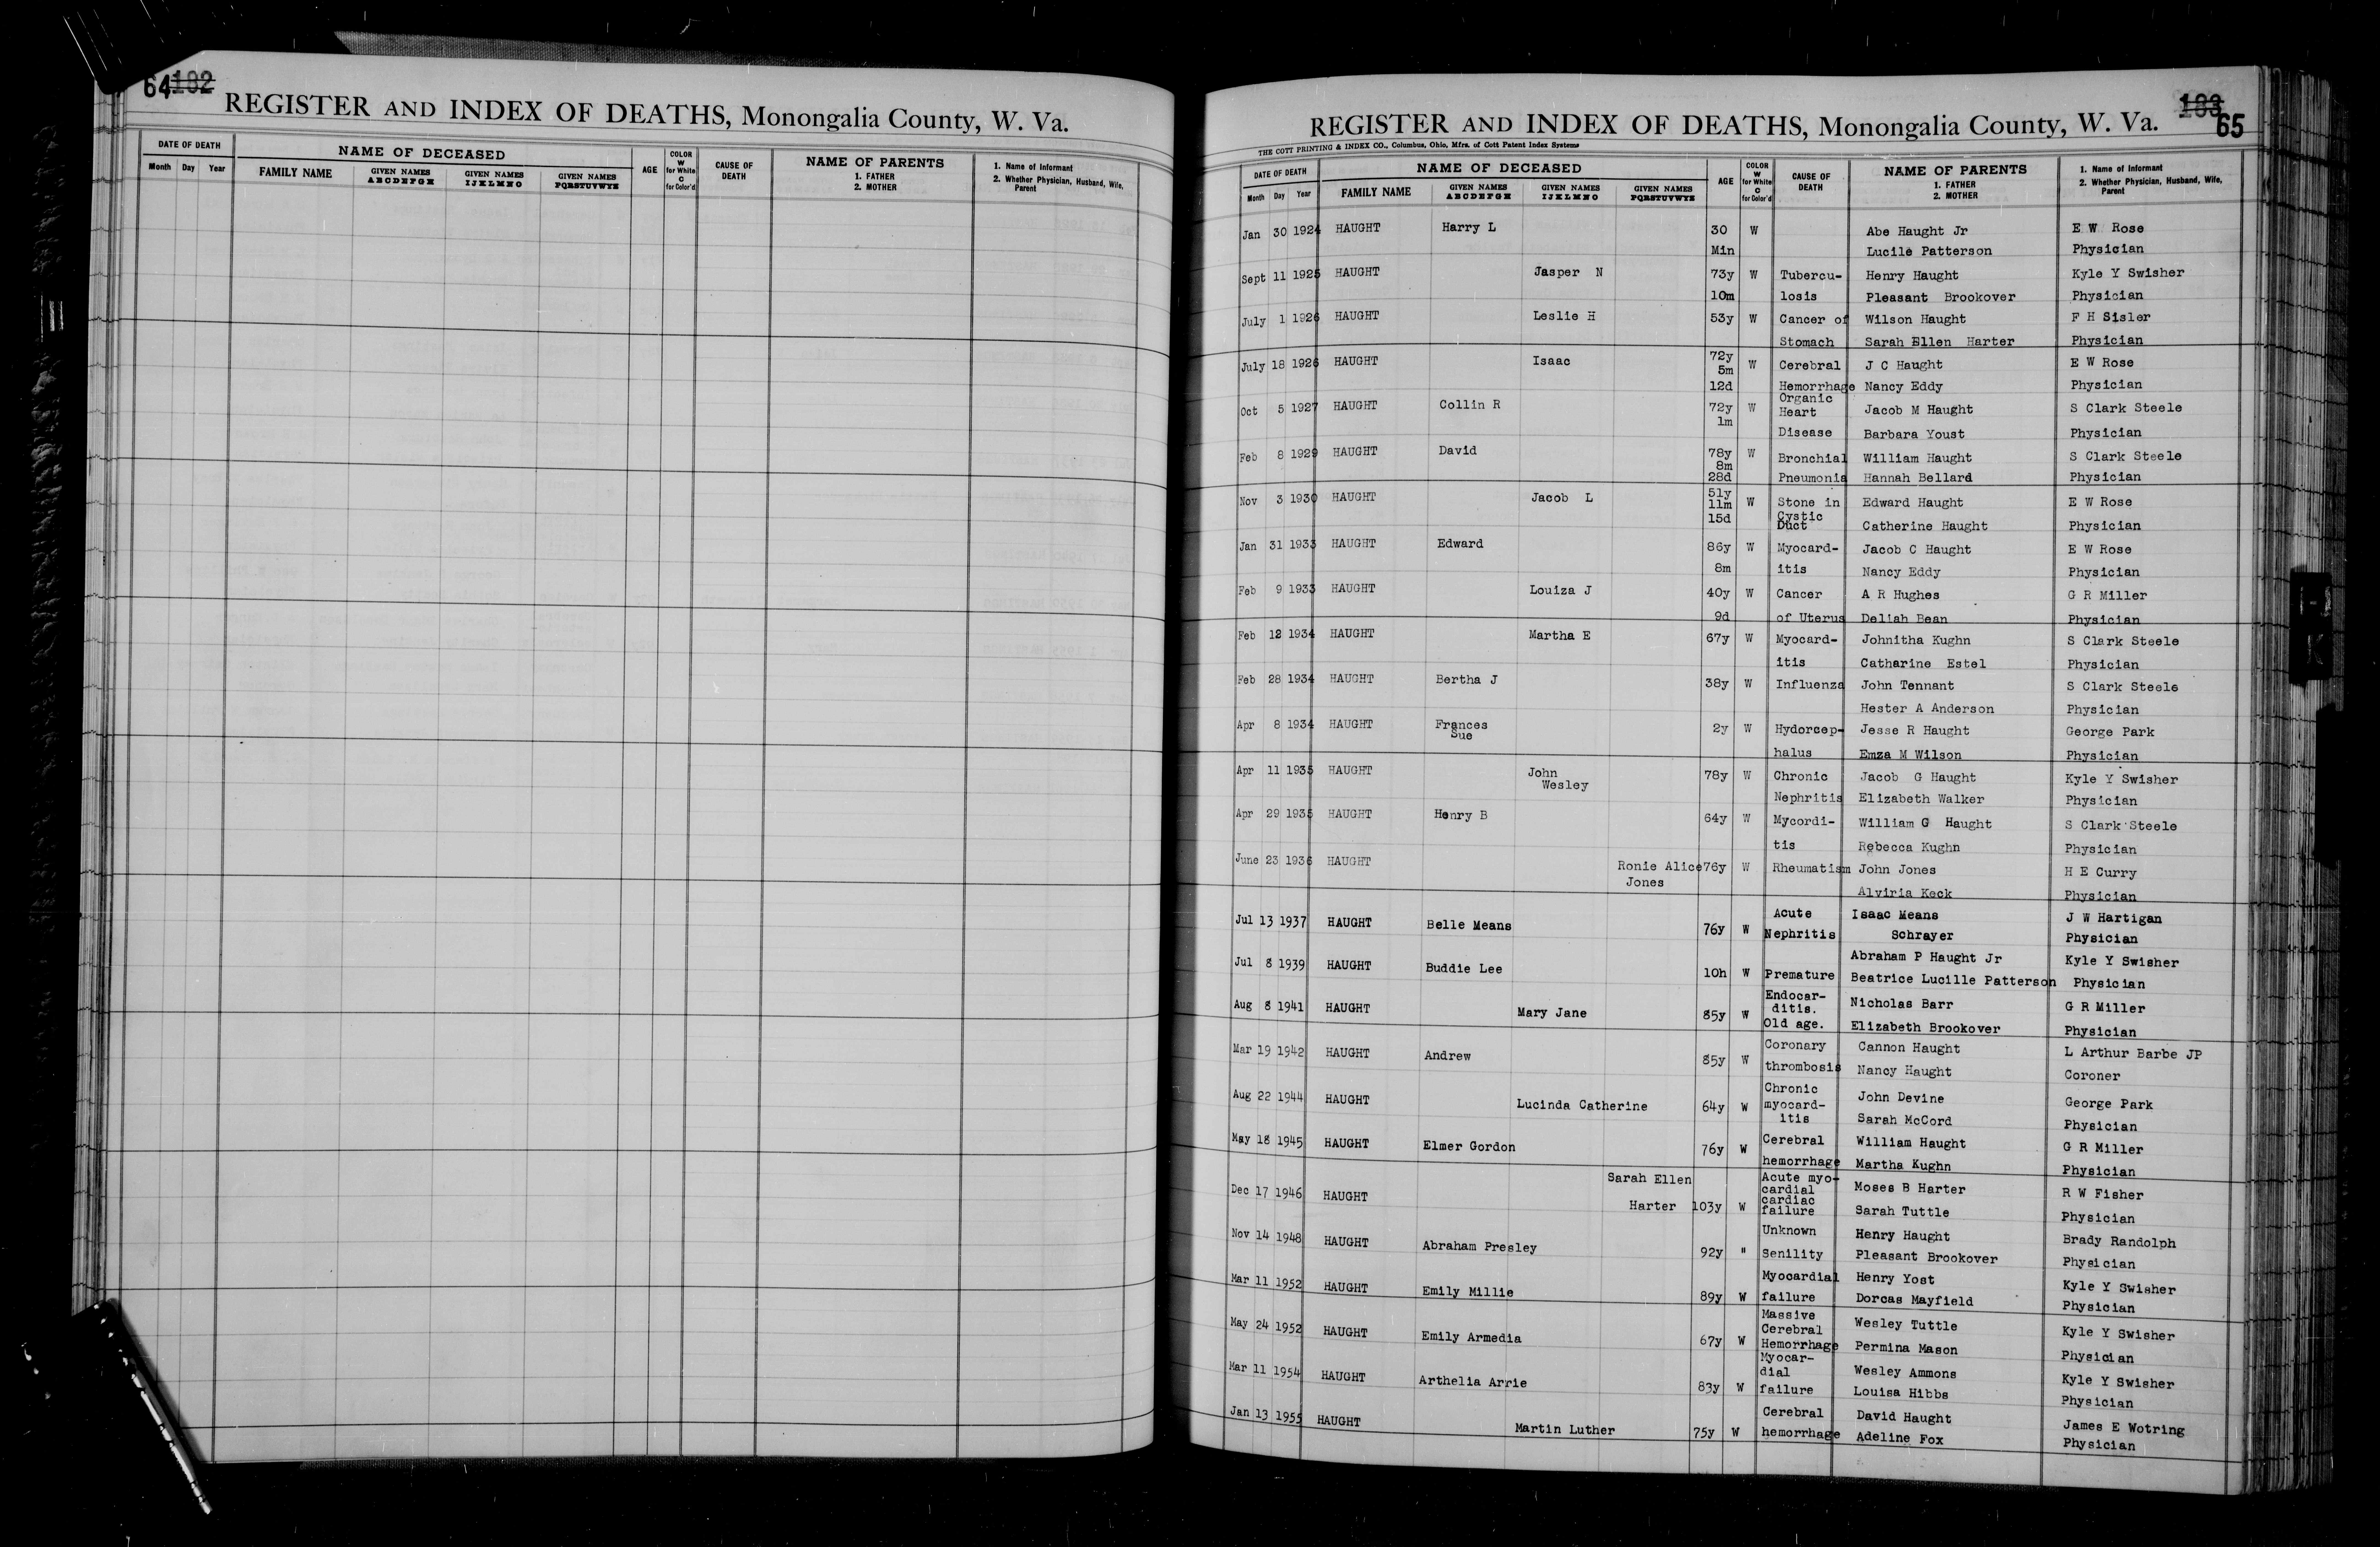 64 182
REGISTER AND INDEX OF DEATHS, Monongalia County, W. Va.
DATE OF DEATH NAME OF DECEASED AGE COLOR W for White C for Color'd CAUSE OF DEATH NAME OF PARENTS 1. FATHER 2. MOTHER 1. Name of Informant 2. Whether Physician, Husband, Wife, Parent
Month Day Year FAMILY NAME GIVEN NAMES ABCDEFGH GIVEN NAMES IJKLMNO GIVEN NAMES PQRSTUVWYZ
183 65
REGISTER AND INDEX OF DEATHS, Monongalia County, W. Va.
THE COTT PRINTING & INDEX CO., Columbus, Ohio, Mfrs. of Cott Patent Index Systems
DATE OF DEATH NAME OF DECEASED AGE COLOR W for White C for Color'd CAUSE OF DEATH NAME OF PARENTS 1. FATHER 2. MOTHER 1. Name of Informant 2. Whether Physician, Husband, Wife, Parent
Month Day Year FAMILY NAME GIVEN NAMES ABCDEFGH GIVEN NAMES IJKLMNO GIVEN NAMES PQRSTUVWYZ
Jan 30 1924 HAUGHT Harry L 30 W Abe Haught Jr E W Rose
Min Lucile Patterson Physician
Sept 11 1925 HAUGHT Jasper N 73y W Tubercu- Henry Haught Kyle Y Swisher
10m losis Pleasant Brookover Physician
July 1 1926 HAUGHT Leslie H 53y W Cancer of Wilson Haught F H Sisler
Stomach Sarah Ellen Harter Physician
July 18 1926 HAUGHT Isaac 72y 5m W Cerebral J C Haught E W Rose
12d Hemorrhage Nancy Eddy Physician
Oct 5 1927 HAUGHT Collin R 72y 1m W Organic Heart Jacob M Haught S Clark Steele
Disease Barbara Youst Physician
Feb 8 1929 HAUGHT David 78y 8m W Bronchial William Haught S Clark Steele
28d Pneumonia Hannah Bellard Physician
Nov 3 1930 HAUGHT Jacob L 51y 11m W Stone in Edward Haught E W Rose
15d Cystic Duct Catherine Haught Physician
Jan 31 1933 HAUGHT Edward 86y W Myocard- Jacob C Haught E W Rose
8m itis Nancy Eddy Physician
Feb 9 1933 HAUGHT Louiza J 40y W Cancer A R Hughes G R Miller
9d of Uterus Deliah Bean Physician
Feb 12 1934 HAUGHT Martha E 67y W Myocard- Johnitha Kughn S Clark Steele
itis Catharine Estel Physician
Feb 28 1934 HAUGHT Bertha J 38y W Influenza John Tennant S Clark Steele
Hester A Anderson Physician
Apr 8 1934 HAUGHT Frances Sue 2y W Hydorcep- Jesse R Haught George Park
halus Emza M Wilson Physician
Apr 11 1935 HAUGHT John Wesley 78y W Chronic Jacob G Haught Kyle Y Swisher
Nephritis Elizabeth Walker Physician
Apr 29 1935 HAUGHT Henry B 64y W Mycordi- William G Haught S Clark Steele
tis Rebecca Kughn Physician
June 23 1936 HAUGHT Ronie Alice 76y W Rheumatism John Jones H E Curry
Jones Alviria Keck Physician
Jul 13 1937 HAUGHT Belle Means 76y W Acute Isaac Means J W Hartigan
Nephritis Schrayer Physician
Jul 8 1939 HAUGHT Buddie Lee 10h W Abraham P Haught Jr Kyle Y Swisher
Premature Beatrice Lucille Patterson Physician
Aug 8 1941 HAUGHT Mary Jane 85y W Endocar- ditis. Nicholas Barr G R Miller
Old age. Elizabeth Brookover Physician
Mar 19 1942 HAUGHT Andrew 85y W Coronary Cannon Haught L Arthur Barbe JP
thrombosis Nancy Haught Coroner
Aug 22 1944 HAUGHT Lucinda Catherine 64y W Chronic myocard- John Devine George Park
itis Sarah McCord Physician
May 18 1945 HAUGHT Elmer Gordon 76y W Cerebral William Haught G R Miller
hemorrhage Martha Kughn Physician
Dec 17 1946 HAUGHT Sarah Ellen Acute myo- cardial Moses B Harter R W Fisher
Harter 103y W cardiac failure Sarah Tuttle Physician
Nov 14 1948 HAUGHT Abraham Presley 92y " Unknown Henry Haught Brady Randolph
Senility Pleasant Brookover Physician
Mar 11 1952 HAUGHT Emily Millie 89y W Myocardial Henry Yost Kyle Y Swisher
failure Dorcas Mayfield Physician
May 24 1952 HAUGHT Emily Armedia 67y W Massive Cerebral Wesley Tuttle Kyle Y Swisher
Hemorrhage Permina Mason Physician
Mar 11 1954 HAUGHT Arthelia Arrie 83y W Myocar- dial Wesley Ammons Kyle Y Swisher
failure Louisa Hibbs Physician
Jan 13 1955 HAUGHT Martin Luther 75y W Cerebral David Haught James E Wotring
hemorrhage Adeline Fox Physician